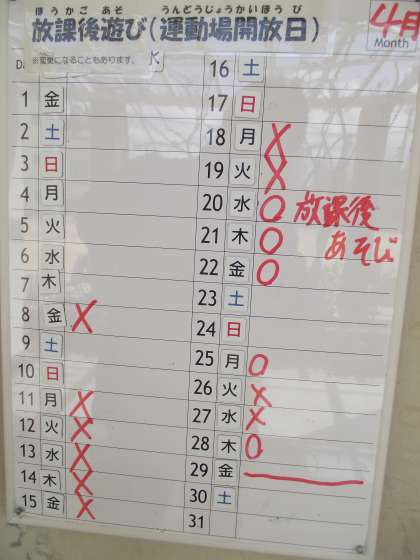 ほうかご あそ うんどうじょうかいほう び
放課後遊び(運動場開放日)
4月
Month
※変更になることもあります。
1 金
2 土
3 日
4 月
5 火
6 水
7 木
8 金 X
9 土
10 日
11 月 X
12 火 X
13 水 X
14 木 X
15 金 X
16 土
17 日
18 月 X
19 火 X
20 水 O 放課後
21 木 O あそび
22 金 O
23 土
24 日
25 月 O
26 火 X
27 水 X
28 木 O
29 金
30 土
31